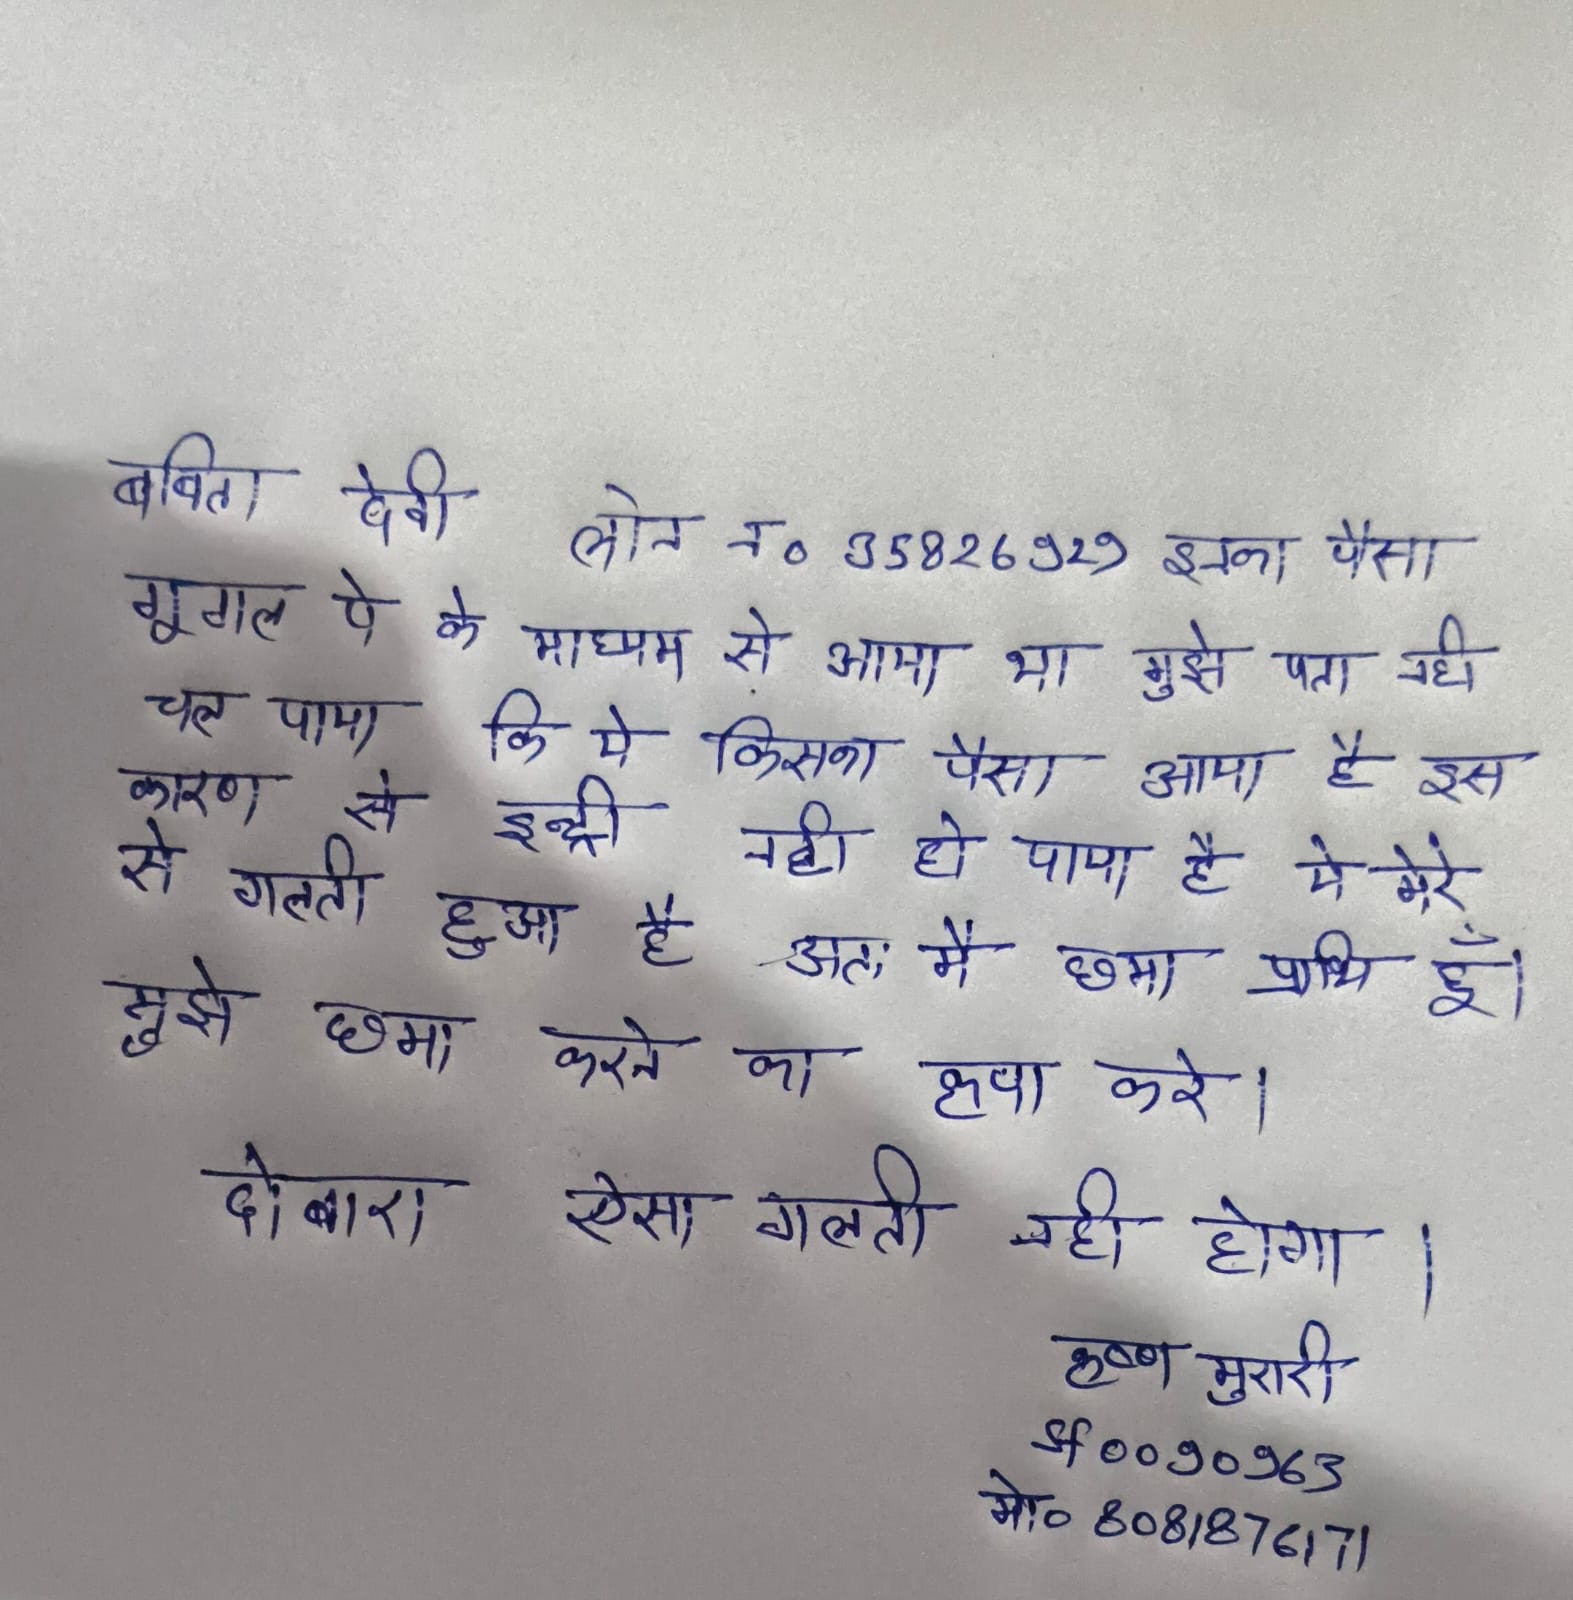 बबिता देवी लोन न० 35826929 इनका पैसा
गूगल पे के माध्यम से आया था मुझे पता नही
चल पाया कि ये किसका पैसा आया है इस
कारण से इन्द्री नही हो पाया है ये मेरे
से गलती हुआ है अतः मै छमा प्रार्थि हूँ।
मुझे छमा करने का कृपा करे।
दोबारा ऐसा गलती नही होगा।
कृष्ण मुरारी
SF0090963
मो० 8081876171